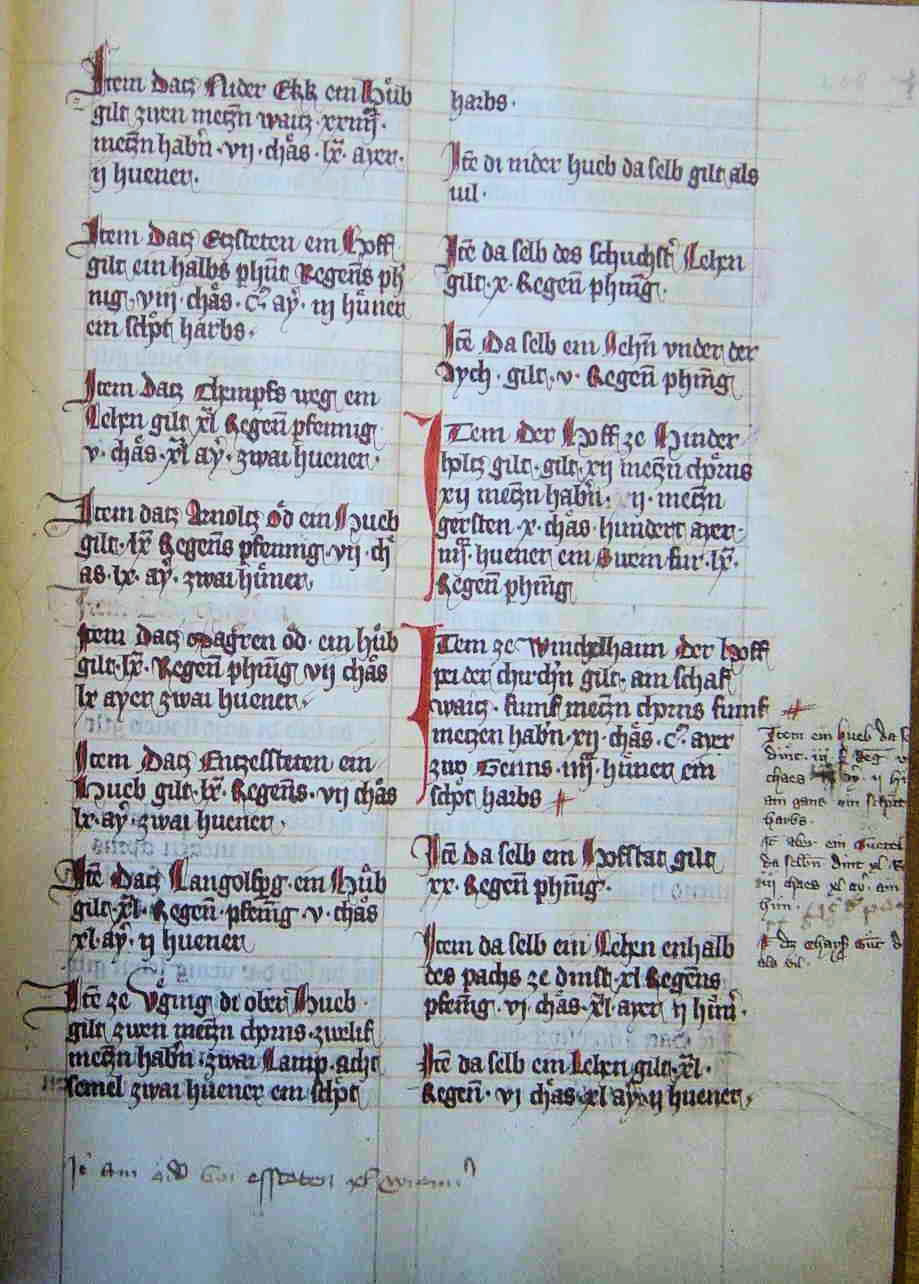 Item Datz Nider Ekk ein Hůb
gilt zwen meczn waitz · xxiiij ·
meczn habn̄ · vij · chås · lx · ayer ·
ij huener ·
Item Datz Etzsteten ein Hoff
gilt ein halbs phūt Regens ph
nig · viij · chås · cͦ · aẙ · iij hůner
ein schöt harbs ·
Item Datz weg ein
Lehen gilt xl Regen̄ pfennig
v · chås · xl aẙ · zwai huener ·
Item datz Arnoltz öd ein Hueb
gilt · lx Regens pfennig · vij · ch
as · lx · aẙ · zwai hůner
Item Datz öd · ein hůb
gilt · lx · Regen̄ phnīg vij chås
lx ayer zwai huener ·
Item Datz Enczessteten ein
Hueb gilt · lx · Regens · vij chås
lx · aẙ · zwai huener ·
Itē Datz ein Hůb
gilt · xl · Regen̄ · pfennīg · v · chås
xl · aẙ · ij huener
Itē ze di ober Hueb ·
gilt zwen meczn chorns · zwelif
meczn habn̄ · zwai Lamp · acht
semel zwai hůener ein schöt
harbs ·
Itē di nider hueb da selb gilt als
uil ·
Itē da selb des schuchst̄ Lehen
gilt · x · Regen̄ phnīg ·
Itē Da selb ein Lehn̄ vnder der
aych · gilt · v · Regen̄ phnīg
ITem Der Hoff ze Hinder
holtz gilt · gilt · xij meczn chorns
xij meczn habn̄ · ij · meczn
gersten · x · chås · hundert ayer ·
iiij · huener ein Swein fur · lx ·
Regen̄ phnīg
ITem ze Winchelhaim Der Hoff
pei der chirchn̄ gilt · ain schaf
waitz · funf meczn chorns funf #
meczen habn̄ · xij · chås · cͦ · ayer
zwo Genns · iiij · hůner ein
schöt harbs #
Itē Da selb ein Hofstat gilt
xx · Regen̄ phnīg ·
Item da selb ein Lehen enhalb
des pachs ze dinst · xl Regens
pfennīg · vi chås · xl · ayer ij hůn̄ ·
Itē da selb ein Lehen gilt · xl ·
Regen̄ · vi chås · xl aẙ · ij huener ·
Item ein hueb da
dint
chaes aẙ · ij
ain gans ein schött
harbs ·
It aber ein
da selbn̄ dint xl ·
iiij chaes xl aẙ ain
hůn ·
als vil ·